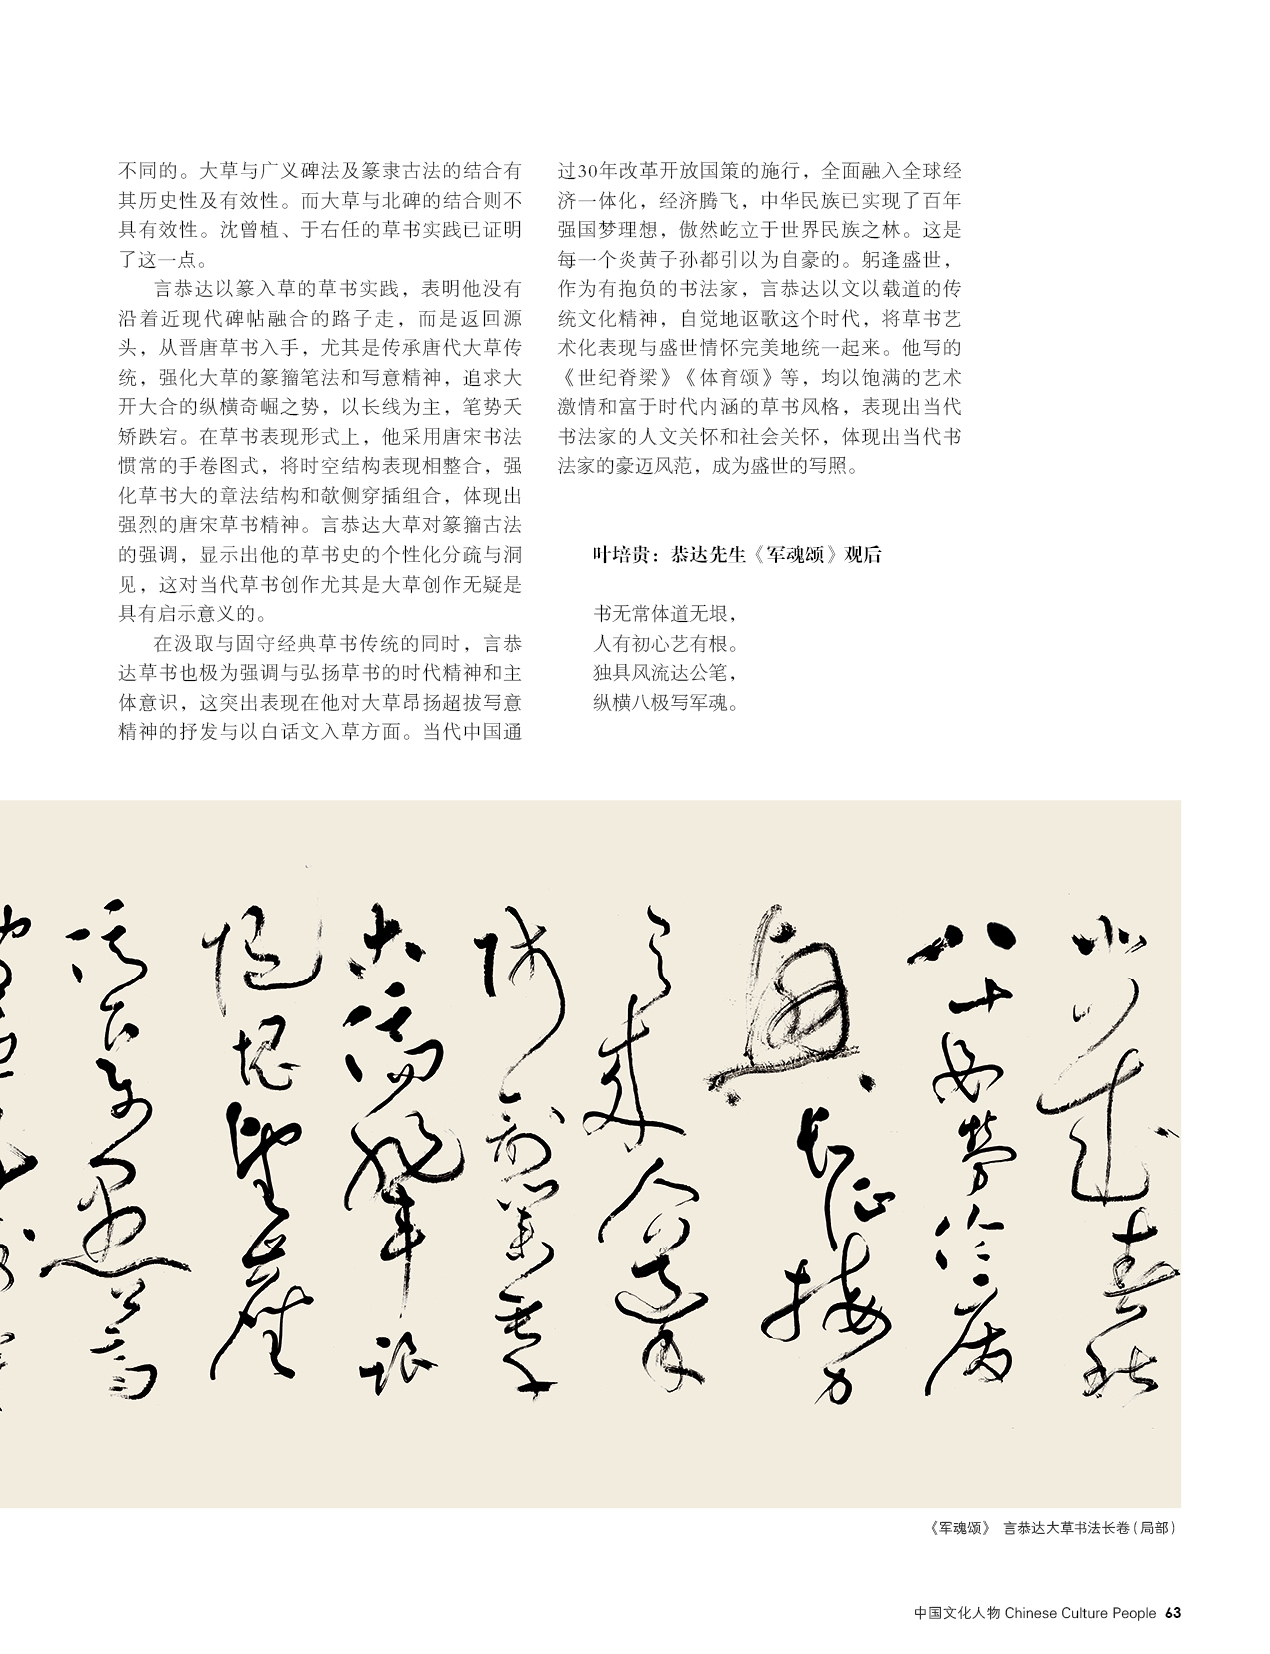 不同的。大草与广义碑法及篆隶古法的结合有
其历史性及有效性。而大草与北碑的结合则不
具有效性。沈曾植、于右任的草书实践已证明
了这一点。
言恭达以篆入草的草书实践，表明他没有
沿着近现代碑帖融合的路子走，而是返回源
头，从晋唐草书入手，尤其是传承唐代大草传
统，强化大草的篆籀笔法和写意精神，追求大
开大合的纵横奇崛之势，以长线为主，笔势夭
矫跌宕。在草书表现形式上，他采用唐宋书法
惯常的手卷图式，将时空结构表现相整合，强
化草书大的章法结构和欹侧穿插组合，体现出
强烈的唐宋草书精神。言恭达大草对篆籀古法
的强调，显示出他的草书史的个性化分疏与洞
见，这对当代草书创作尤其是大草创作无疑是
具有启示意义的。
在汲取与固守经典草书传统的同时，言恭
达草书也极为强调与弘扬草书的时代精神和主
体意识，这突出表现在他对大草昂扬超拔写意
精神的抒发与以白话文入草方面。当代中国通
过30年改革开放国策的施行，全面融入全球经
济一体化，经济腾飞，中华民族已实现了百年
强国梦理想，傲然屹立于世界民族之林。这是
每一个炎黄子孙都引以为自豪的。躬逢盛世，
作为有抱负的书法家，言恭达以文以载道的传
统文化精神，自觉地讴歌这个时代，将草书艺
术化表现与盛世情怀完美地统一起来。他写的
《世纪脊梁》《体育颂》等，均以饱满的艺术
激情和富于时代内涵的草书风格，表现出当代
书法家的人文关怀和社会关怀，体现出当代书
法家的豪迈风范，成为盛世的写照。
叶培贵：恭达先生《军魂颂》观后
书无常体道无垠，
人有初心艺有根。
独具风流达公笔，
纵横八极写军魂。
八十
长征接力
《军魂颂》 言恭达大草书法长卷（局部）
中国文化人物 Chinese Culture People 63